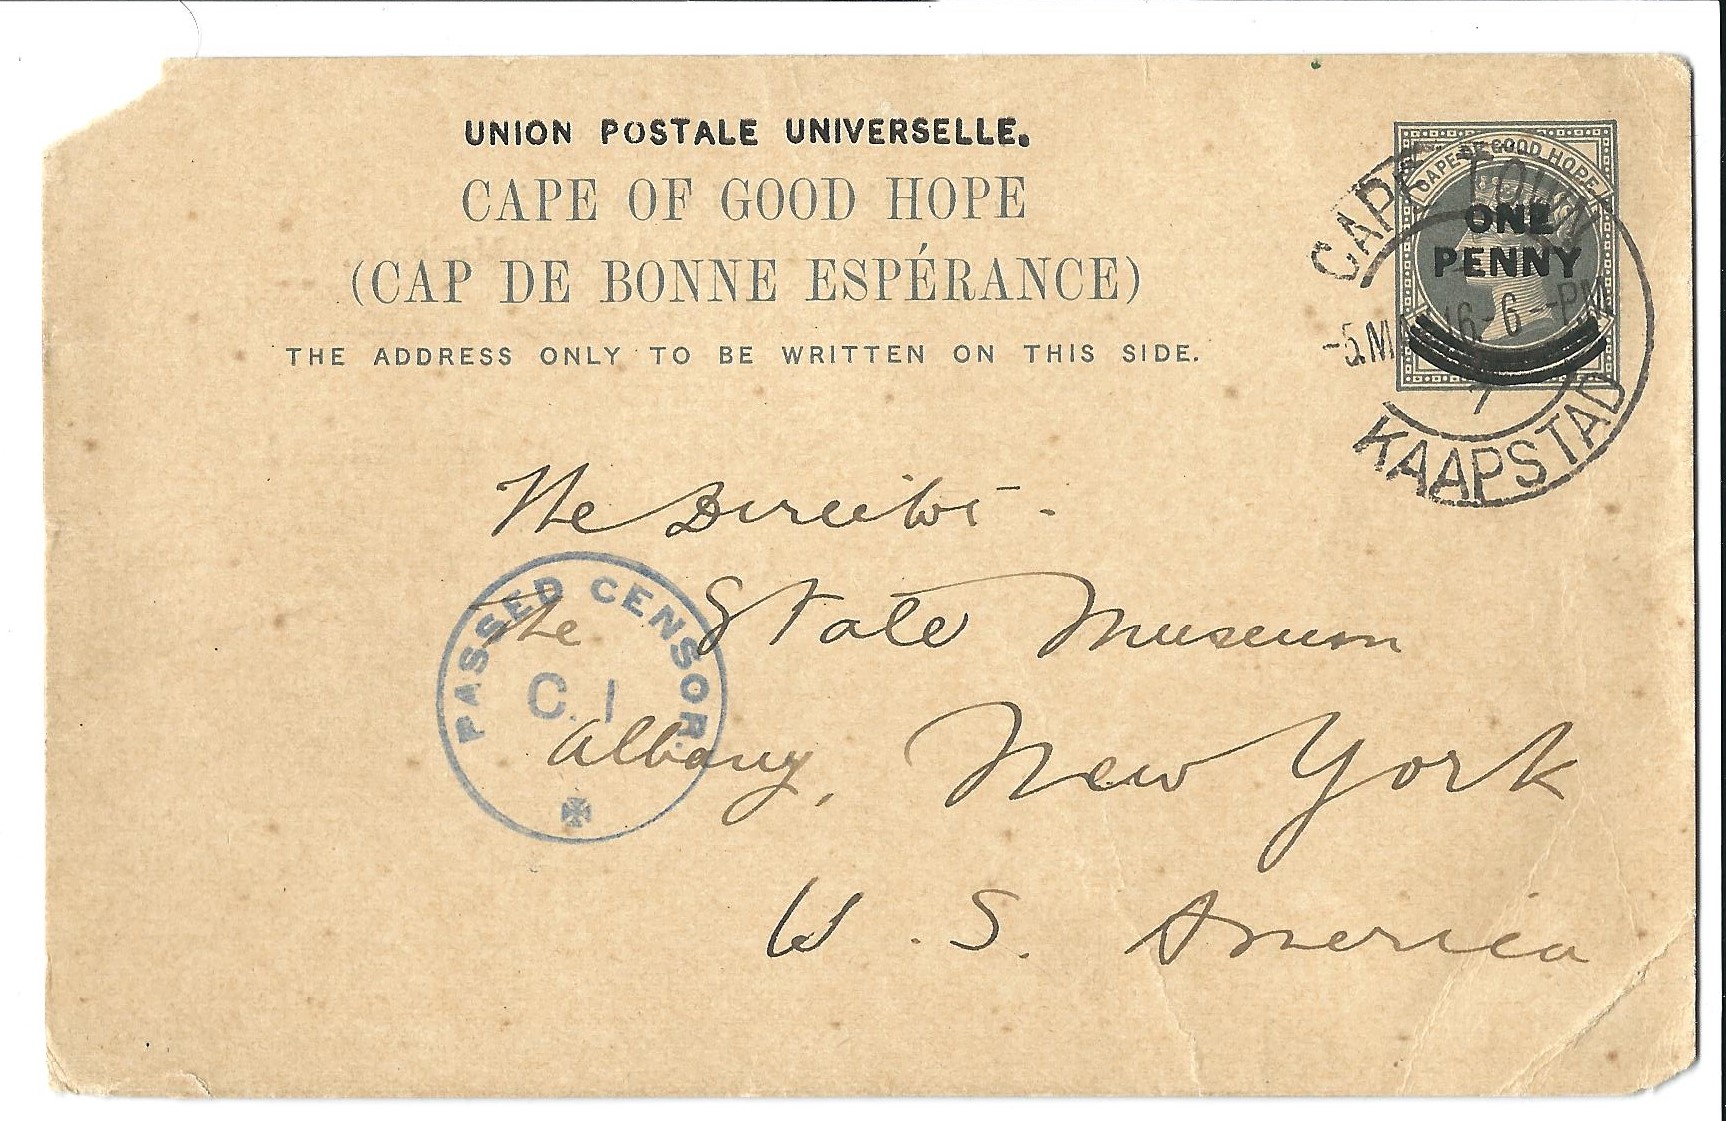 UNION POSTALE UNIVERSELLE.
CAPE OF GOOD HOPE
(CAP DE BONNE ESPÉRANCE)
THE ADDRESS ONLY TO BE WRITTEN ON THIS SIDE.
CAPE DE GOOD HOPE
ONE
PENNY
CAPE TOWN
16-6-PM
7
KAAPSTAD
The Director.
The State Museum
Albany, New York
U.S. America
PASSED CENSOR.
C.1